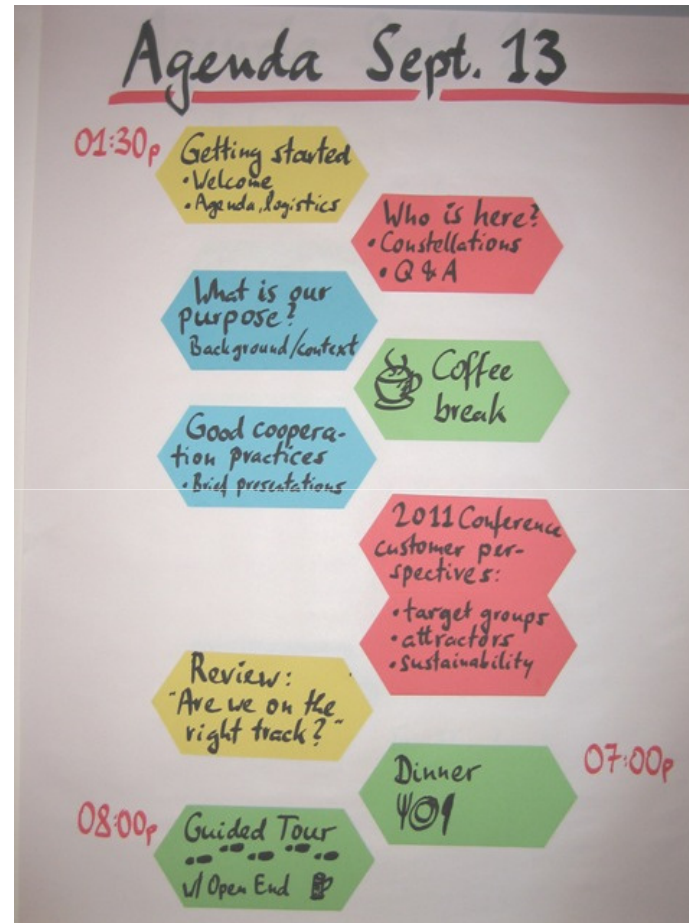 Agenda Sept. 13
01:30p
Getting started
• Welcome
• Agenda, logistics
Who is here?
• Constellations
• Q & A
What is our
purpose?
Background/context
Coffee
break
Good coopera-
tion practices
• Brief presentations
2011 Conference
customer per-
spectives:
• target groups
• attractors
• sustainability
Review:
"Are we on the
right track?"
Dinner
07:00p
08:00p
Guided Tour
w/ Open End